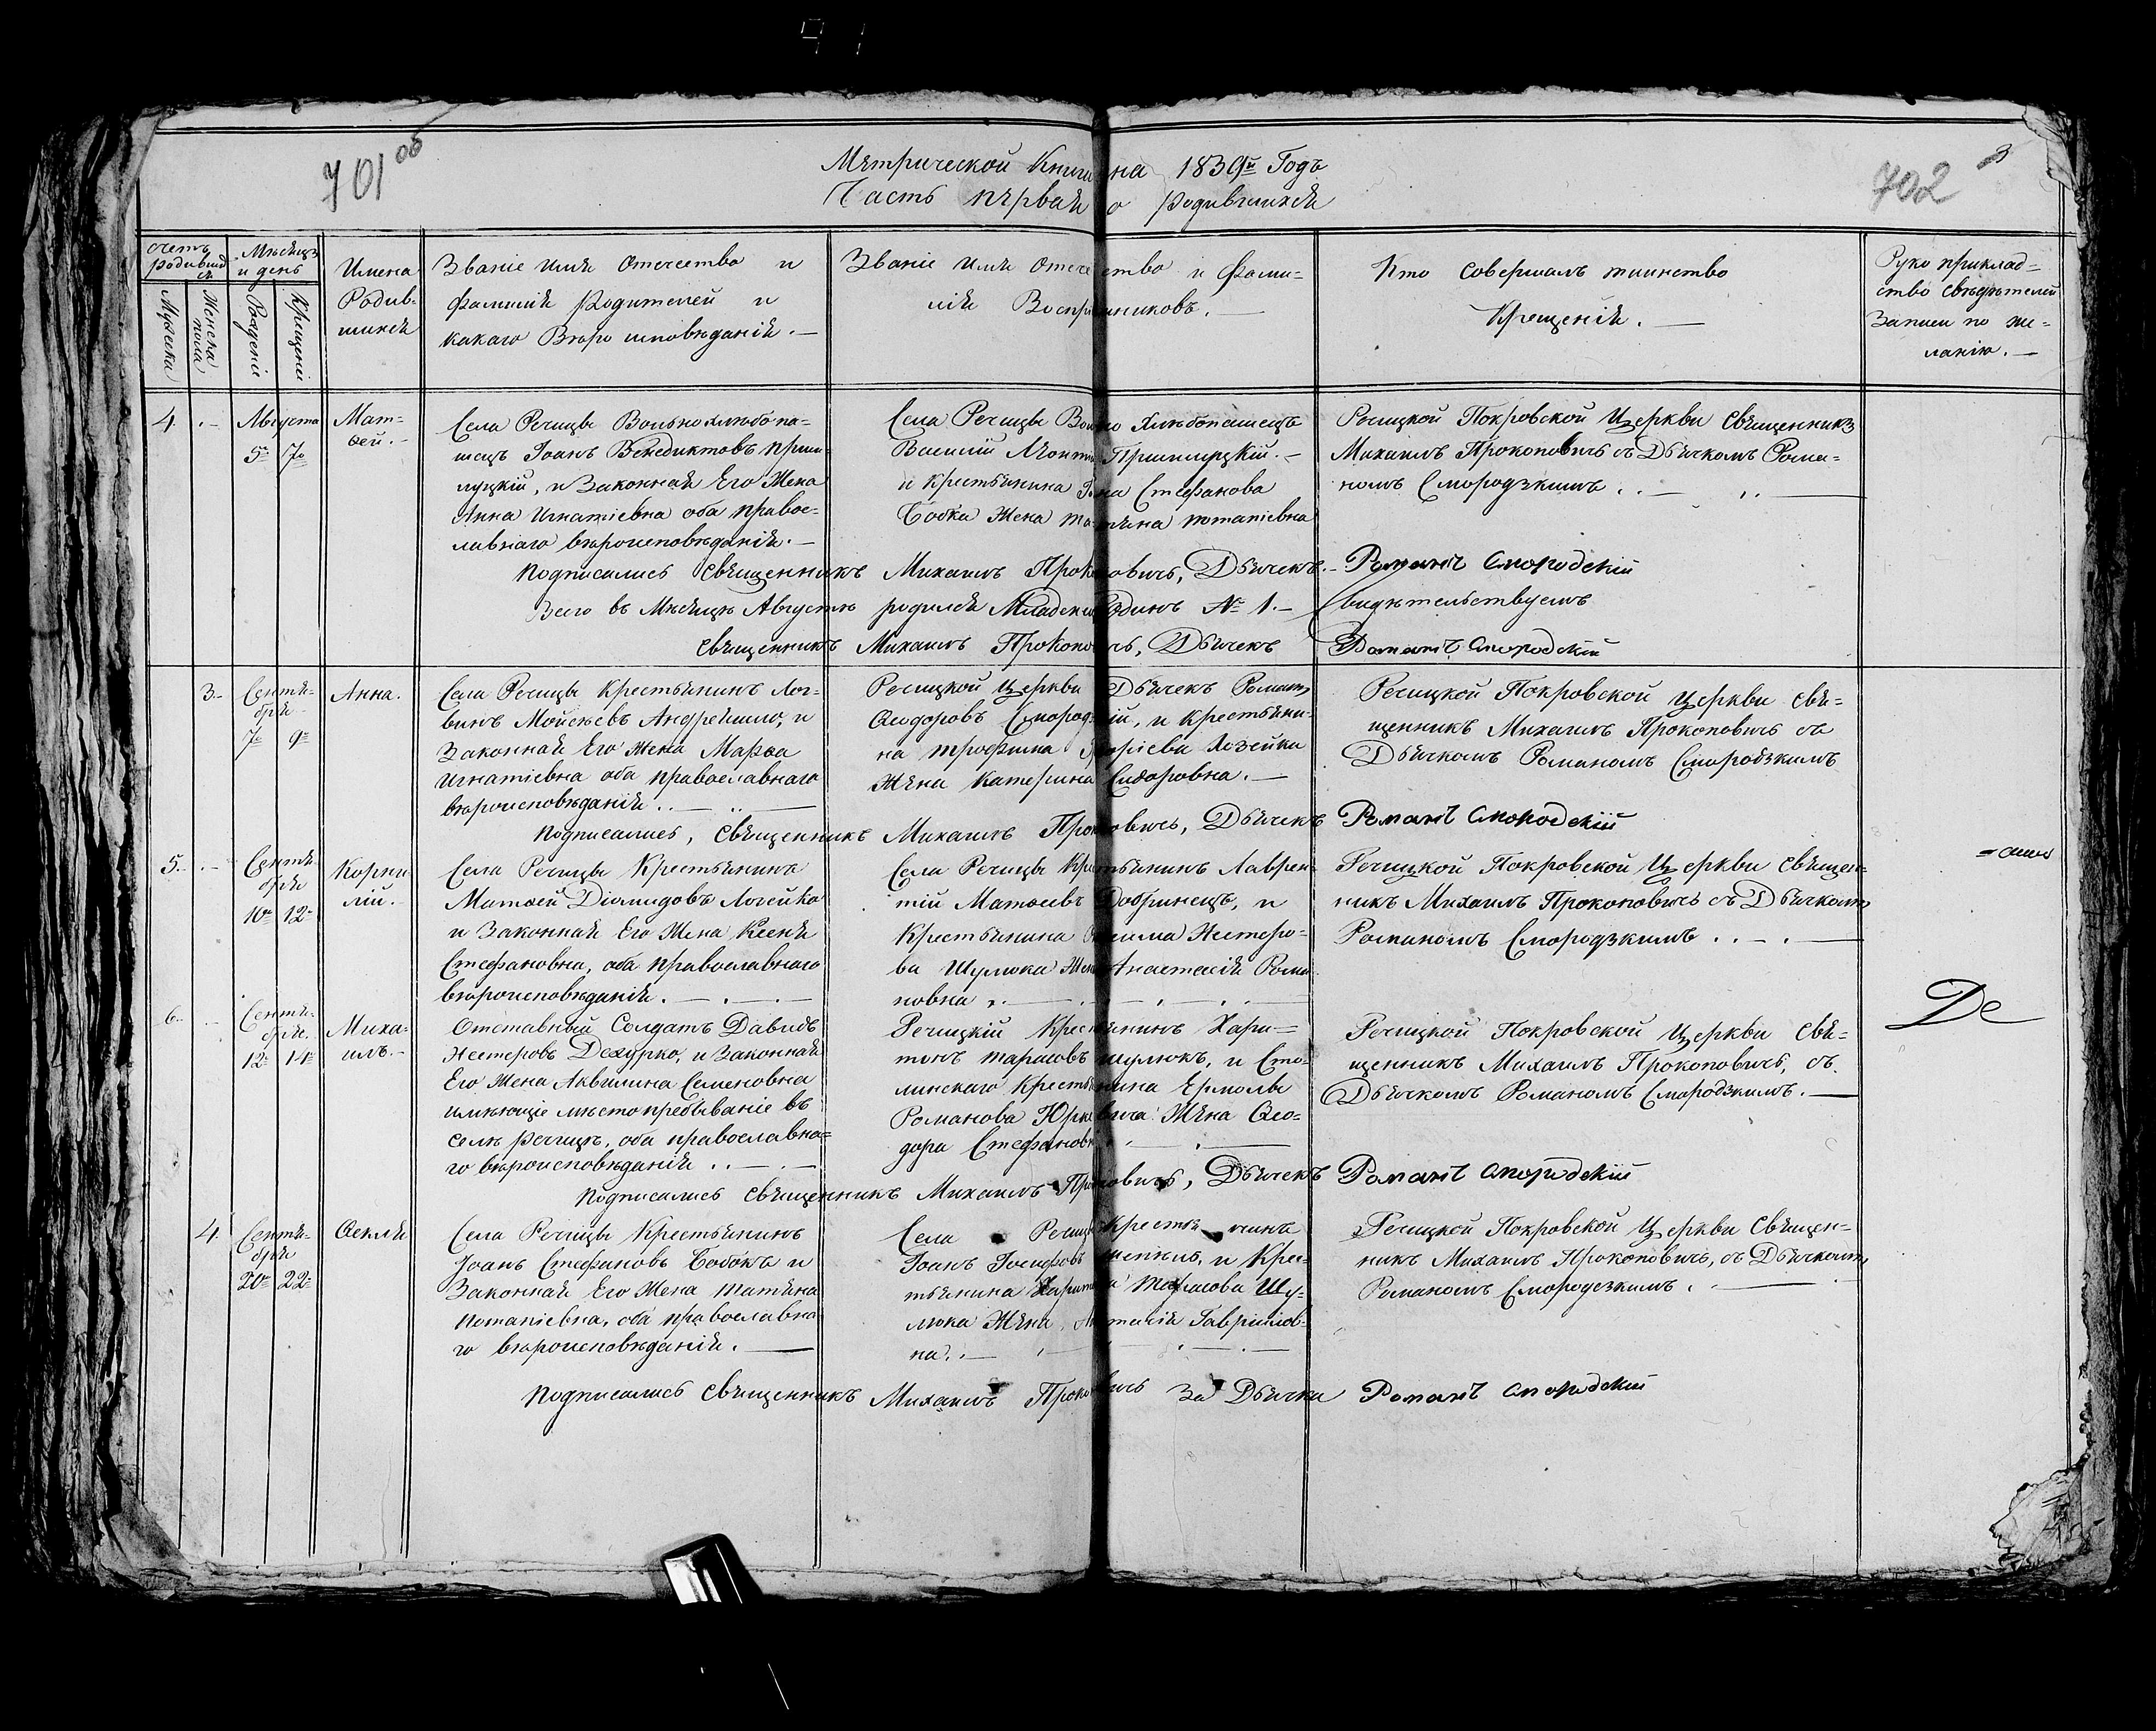 701 об
702
Метрической Книги на 1839й Годъ
Часть первая о родившихся
счетъ родивших ся
Мужеска
Женска пола
Мѣсяцъ и день
Рожденія
Крещенія
Имена
Родив-
шихся
Званіе имя отечество и
фамилія родителей и
какаго Вѣроисповѣданія. —
Званіе имя отечество и фами-
лія Воспріемниковъ. —
Кто совершалъ таинство
Крещенія. —
Руко приклад=
ство свѣдѣтелей
Записи по же-
ланію. —
4. Августа
5е 7е
Мат-
ѳей. —
Села Речицы Вольнохлѣбопа-
шецъ Іоанъ Венедиктовъ Прши-
луцкій, и Законная Его Жена
Анна Игнатіевна оба правос-
лавнаго вѣроисповѣданія. —
Села Речицы Вольно Хлѣбопашецъ
Василій Пршилуцкій. —
и Крестьянина Стефанова
Бобка Жена Татіяна Потапіевна
Речицкой Покровской Церкви Священникъ
Михаилъ Прокоповичъ съ Дьячкомъ Рома-
номъ Смородзкимъ . . —
Подписались Священникъ Михаилъ Прокоповичъ, Дьячекъ. — Романъ Смородскій
Всего въ Мѣсяцѣ Августѣ родился Младенец Одинъ № 1. — Свидѣтельствуемъ
Священникъ Михаилъ Прокоповичъ, Дьячек Романъ Смородскій
3. Сентя-
бря
7е 9е
Анна.
Села Речицы Крестьянинъ Лог-
винъ Мойсеевъ Андрейшло, и
Законная Его Жена Марѳа
Игнатіевна оба православнаго
вѣроисповѣданія . . —
Речицкой Церкви Дьячек Романъ
Ѳеодоровъ Смородзкій, и Крестьяни-
на Трофима Хозейки
Жена Катерина Сидоровна. —
Речицкой Покровской Церкви Свя-
щенникъ Михаилъ Прокоповичъ съ
Дьячкомъ Романомъ Смородзкимъ
Подписались, Священникъ Михаилъ Прокоповичъ, Дьячекъ Романъ Смородскій
5. Сентя
бря
10е 12е
Корни
лій.
Села Речицы Крестьянинъ
Матѳей Діомидовъ Логейко
и Законная Его Жена Ксенія
Стефановна, оба православнаго
вѣроисповѣданія. —
Села Речицы Крестьянинъ Лаврен-
тій Матѳеевъ Добринецъ, и
Крестьянина Нестеро-
ва Шулюка Жена Анастасія Рома-
новна
Речицкой Покровской Церкви Священ-
никъ Михаилъ Прокоповичъ съ Дьячкомъ
Романомъ Смородзкимъ . . —
6. Сентя-
бря.
12е 14е
Миха-
илъ. —
Отставный Солдатъ Давидъ
Нестеровъ Дехурко, и Законная
Его Жена Аквилина Семеновна
имѣющіе мѣстопребываніе въ
селѣ речицѣ, оба православна=
го вѣроисповѣданія . . —
Речицкій Крестьянинъ Хари=
тонъ Тарасовъ Шулюкъ, и Сто-
линскаго Крестьянина Ермолы
Романова Юркевича Жена Ѳео-
дора Стефановна
Речицкой Покровской Церкви Свя-
щенникъ Михаилъ Прокоповичъ, съ
Дьячкомъ Романомъ Смородзкимъ. —
Де
Подписались Священникъ Михаилъ Прокоповичъ, Дьячекъ Романъ Смородскій
4. Сентя-
бря
20е 22е
Ѳекля
Села Речицы Крестьянинъ
Іоанъ Стефановъ Бобокъ и
Законная Его Жена Татіяна
Потапіевна, оба православна-
го вѣроисповѣданія. —
Села Речицы Крестьянинъ
Іоанъ Іосифовъ и Крес-
тьянина Харитона Тарасова Шу-
люка Жена Анастасія Гавриилов-
на. . —
Речицкой Покровской Церкви Священ-
никъ Михаилъ Прокоповичъ, съ Дьячкомъ
Романомъ Смородзкимъ . —
Подписались Священникъ Михаилъ Прокоповичъ За Дьячка Романъ Смородскій